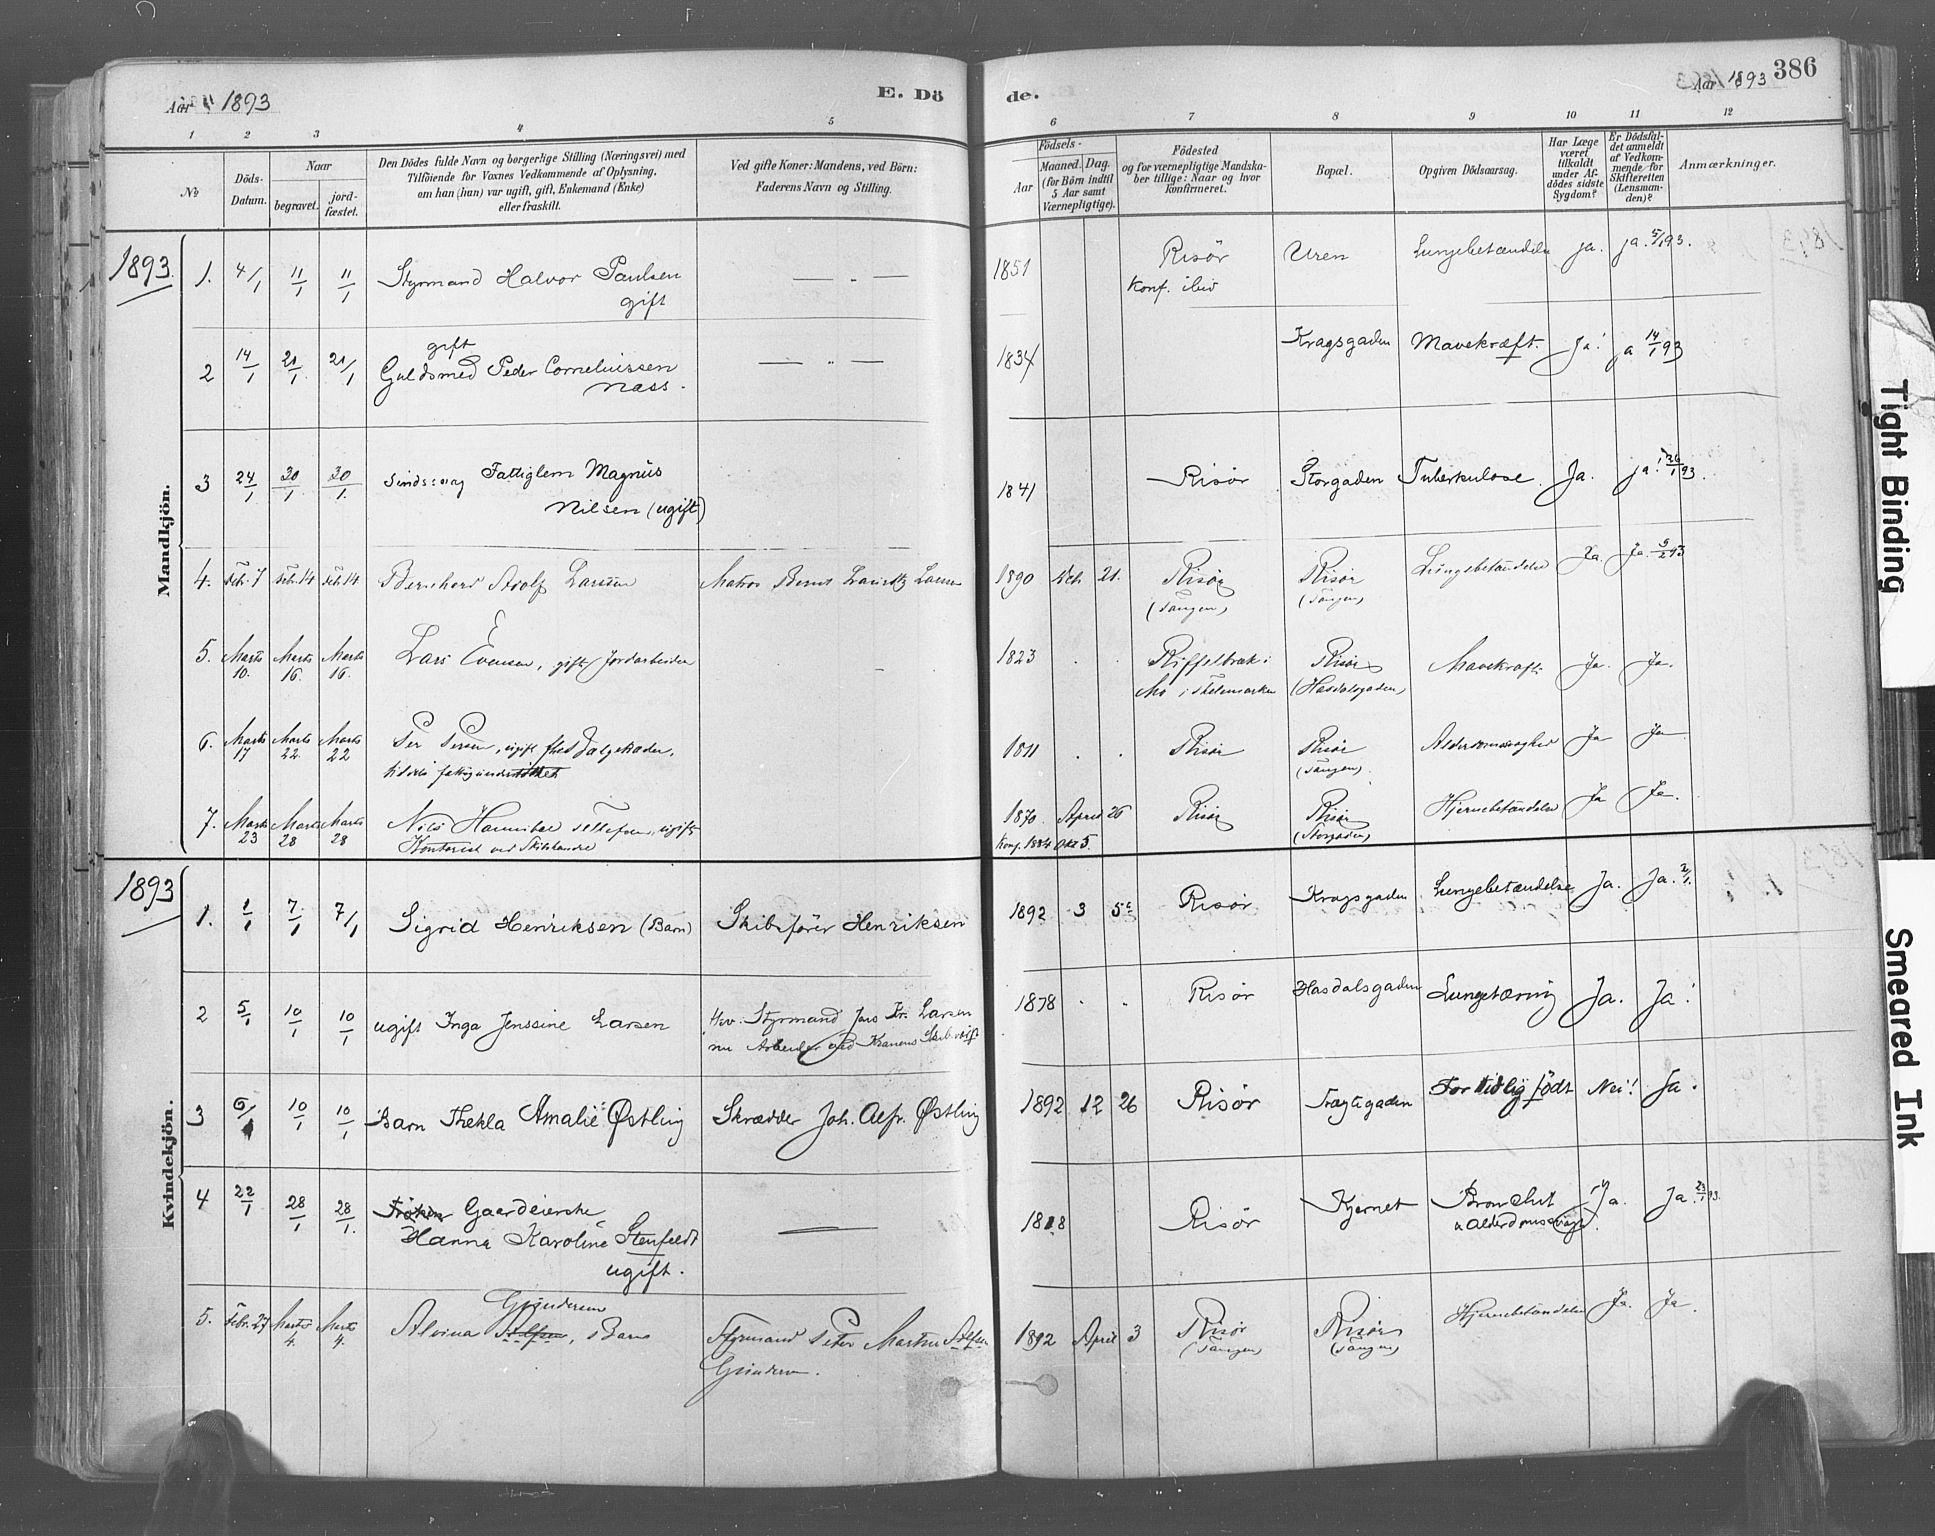 Aar 1893
E. Dö
de.
Aar 1893
386
1 2 3 4 5 6 7 8 9 10 11 12
No
Döds-
Datum.
Naar
begravet.
jord-
fæstet.
Den Dödes fulde Navn og borgerlige Stilling (Næringsvei) med
Tilföiende for Voxnes Vedkommende af Oplysning,
om han (hun) var ugift, gift, Enkemand (Enke)
eller fraskilt.
Ved gifte Koner: Mandens, ved Börn:
Faderens Navn og Stilling.
Födsels-
Aar
Maaned.
Dag.
(for Börn indtil
5 Aar samt
Værnepligtige).
Födested
og for værnepligtige Mandska-
ber tillige: Naar og hvor
konfirmeret.
Bopæl.
Opgiven Dödsaarsag.
Har Læge
været
tilkaldt
under Af-
dödes sidste
Sygdom?
Er Dödsfal-
det anmeldt
af Vedkom-
mende for
Skifteretten
(Lensman-
den)?
Anmærkninger.
Mandkjön.
1893
1. 4/1 11/1 11/1 Styrmand Halvor Paulsen — „ — 1851 Risör Uren Lungebetændelse ja. ja. 5/1 93.
gift
Konf. ibid
2 14/1 21/1 21/1 gift
Guldsmed Peder Corneliussen — „ 1834 Kragsgaden Mavekræft. Ja! ja 14/1 93
Næss.
3 24/1 30/1 30/1 Sindssvag Fattiglem Magnus 1841 Risör Storgaden Tuberkulose Ja. ja! 26/1 93.
Nilsen (ugift)
4. Febr. 7 Febr. 14 Febr. 14 Bernhard Adolf Larsen Matros Bernt Lauritz Larsen 1890 Oct. 21. Risör Risör Lungebetændelse Ja. Ja. 9/2 93
(Tangen) (Tangen)
5. Marts 10. Marts 16. Marts 16. Lars Evensen, gift Jordarbeider 1823 Mo i Thelemarken Risör Mavekræft Ja. Ja.
(Hasdalsgaden)
6. Marts 17 Marts 22 Marts 22 Per Persen, ugift 1811 Risör Risör Alderdomssvaghed Ja Ja
(Tangen).
7. Marts 23 Marts 28 Marts 28 Nils Hannibal Tellefsen, ugift 1870. April 26 Risör Risör Hjernebetændelse Ja Ja.
Kontorist ved Skibshandel Konf. 1884 Okt 5. (Storgaden)
Kvindekjön.
1893
1. 1/1 7/1 7/1 Sigrid Henriksen (Barn) Skibsförer Henriksen 1892 3 5te Risör Kragsgaden Lungebetændelse Ja. Ja. 2/1.
2 5/1 10/1 10/1 ugift Inga Jenssine Larsen Hv. Styrmand Jens Kr. Larsen 1878 Risör Hasdalsgaden Lungetæring Ja. Ja!
nu Arbeider ved Kranens Skibsværft
3 6/1 10/1 10/1 Barn Thekla Amalie Østling Skrædder Joh. Alfr. Østling 1892 12 26 Risör Trægtegaden For tidlig födt Nei! Ja.
4 22/1 28/1 28/1. Fröken Gaardeierske 1818 Risör Kjernet Bronchit Ja. Ja 23/1 93.
Hanna Karoline Stenfeldt
& Alderdomssvagh.
ugift.
5. Febr. 27 Marts 4. Marts 4. Gundersen
Alvina Alfsen, Barn Styrmand Peter Martin Alfsen 1892 April 3 Risör Risör Hjernebetændelse Ja. Ja.
Gundersen. (Tangen) (Tangen)
Tight Binding
Smeared Ink